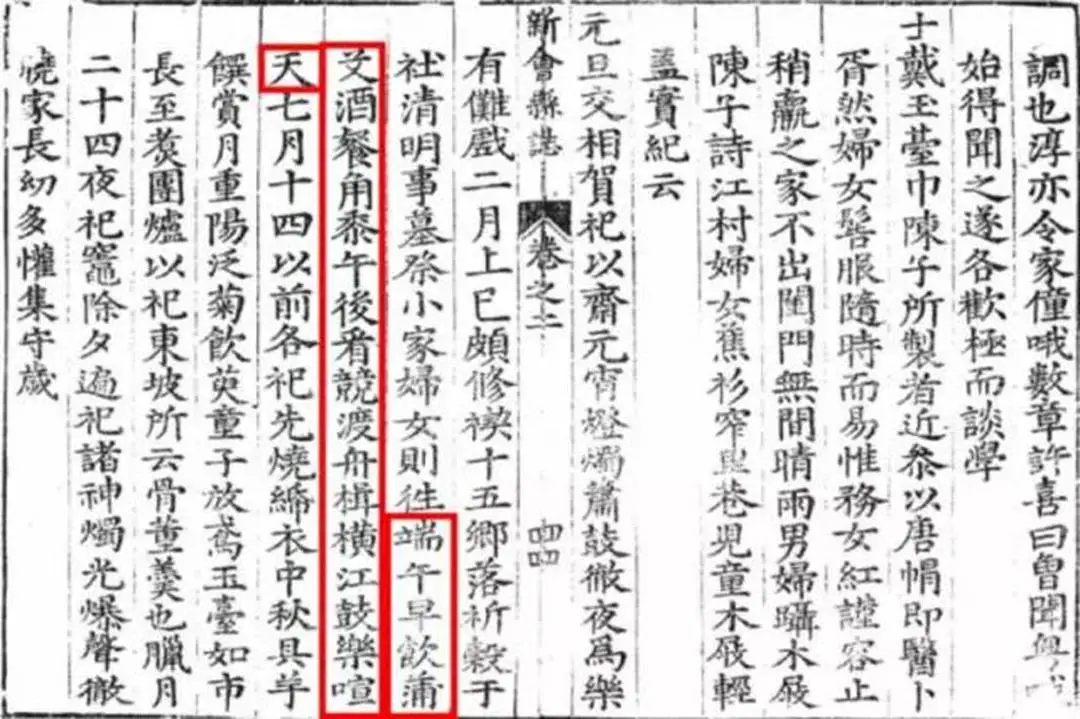 調也淳亦令家僮哦數章許喜曰曾聞
始得聞之遂各歡極而談學
士戴玉臺巾陳子所製者近叅以唐帽即醫卜
胥然婦女髻服隨時而易惟務女紅謹容止
稍羸之家不出閨門無間晴雨男婦躡木屐
陳子詩江村婦女蕉衫窄里巷兒童木屐輕
盖實紀云
新會縣誌 卷之二 四四
元旦交相賀祀以齋元宵燈燭簫鼓徹夜為樂
有儺戲二月上巳頗修禊十五鄉落祈穀于
社清明事墓祭小家婦女則徃端午早飲蒲
艾酒餐角黍午後看競渡舟楫橫江鼓樂喧
天七月十四以前各祀先燒紙衣中秋具芋
饌賞月重陽泛菊飲萸童子放鳶玉臺如市
長至煑團爐以祀東坡所云骨董羹也臘月
二十四夜祀竈除夕遍祀諸神燭光爆聲徹
曉家長幼多懽集守歲